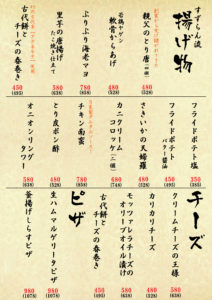 すずらん流
揚げ物
親父のとり唐(四個)
480
(528)
北海ヤゲン
軟骨から揚げ
480
(528)
ぷりぷり海老マヨ
780
(858)
里芋の唐揚げ
たこ焼き仕立て
580
(638)
古代餅と
チーズの春巻き
450
(495)
フライドポテト塩
350
(385)
フライドポテト
バター醤油
カニクリーム
コロッケ(二個)
さきいかの天婦羅
480
(528)
チキン南蛮
780
(858)
とり皮ポン酢
480
(528)
オニオンリング
タワー
580
(638)
チーズ
クリームチーズの王様
580
(638)
カリカリチーズ
480
(528)
モッツァレラチーズの
オリーブオイル漬け
580
(638)
古代餅と
チーズの春巻き
450
(495)
ピザ
生ハムマルゲリータピザ
980
(1078)
釜揚げしらすピザ
980
(1078)